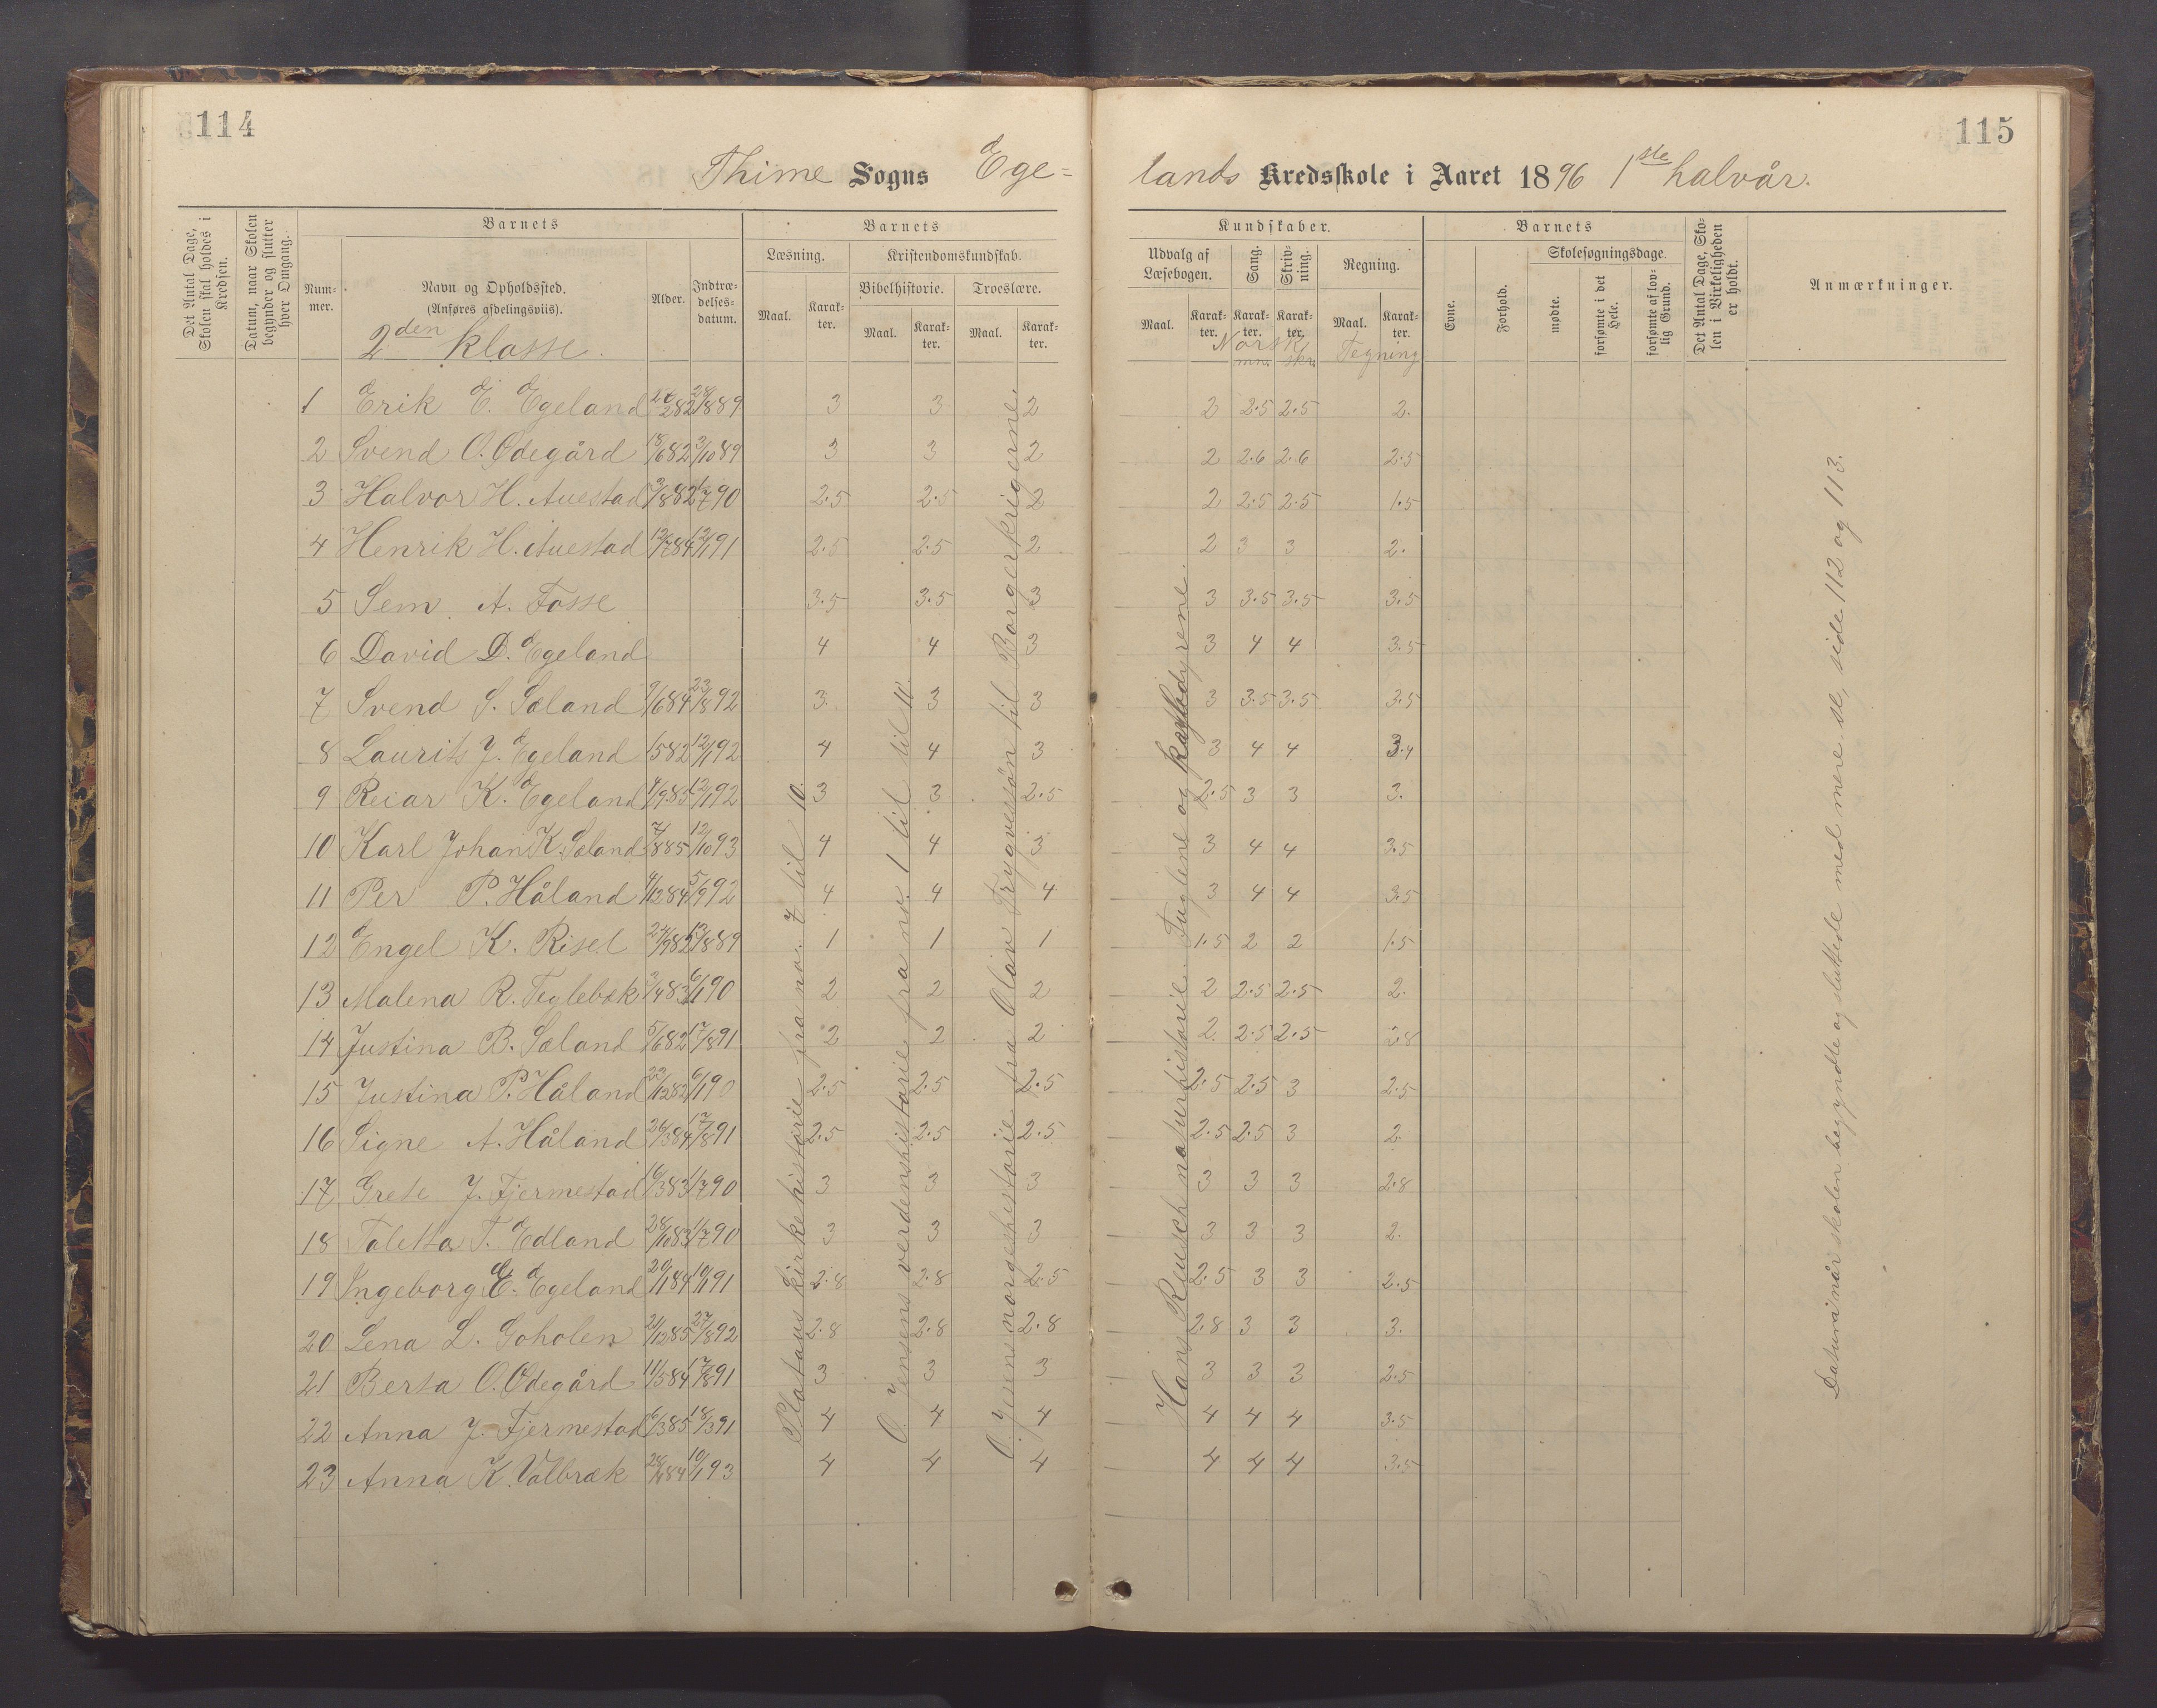 114
115
Thime Sogns Ege=
lands Kredsskole i Aaret 1896 1ste halvår.
Det Antal Dage, Skolen skal holdes i Kredsen.
Datum, naar Skolen begynder og slutter hver Omgang.
Barnets
Nummer.
Navn og Opholdssted.
(Anføres afdelingsviis).
2den klasse.
Alder.
Indtrædelsesdatum.
Barnets
Læsning.
Kristendomskundskab.
Bibelhistorie.
Troeslære.
Maal. Karakter. Maal. Karakter. Maal. Karakter.
Kundskaber.
Udvalg af Læsebogen.
Sang.
Skrivning.
Regning.
Maal. Karakter. Karakter. Karakter. Maal. Karakter.
Norsk
mn. skr.
Tegning
Barnets
Evne.
Forhold.
Skolesøgningsdage.
mødte.
forsømte i det Hele.
forsømte af lovlig Grund.
Det Antal Dage, Skolen i Virkeligheden er holdt.
Anmærkninger.
1 Erik E. Egeland 3 3 2 2 2.5 2.5 2.
2 Svend O. Ødegård 18/6 82 3/10 89 3 3 2 2 2.6 2.6 2.5
3 Halvor H. Auestad 2.5 2.5 2 2 2.5 2.5 1.5
4 Henrik H. Auestad 12/7 84 12/1 91 2.5 2.5 2 2 3 3 2.
5 Sem A. Fosse 3.5 3.5 3 3 3.5 3.5 3.5
6 David D. Egeland 4 4 3 3 4 4 3.5
7 Svend S. Sæland 9/6 84 23/8 92 3 3 3 3 3.5 3.5 3.5
8 Laurits J. Egeland 12/1 92 4 4 3 3 4 4 3.4
9 Reiar K. Egeland 12/1 92 3 3 2.5 2.5 3 3 3.
10 Karl Johan K. Sæland 7/8 85 12/10 93 4 4 3 3 4 4 3.5
11 Per P. Håland 4/12 84 5/9 92 4 4 4 3 4 4 3.5
12 Engel K. Risel 1 1 1 1.5 2 2 1.5
13 Malena R. Teglebæk 3/4 83 6/1 90 2 2 2 2 2.5 2.5 2.
14 Justina B. Sæland 5/6 82 17/8 91 2 2 2 2. 2.5 2.5 2.8
15 Justina P. Håland 22/12 82 6/1 90 2.5 2.5 2.5 2.5 2.5 3 2.5
16 Signe A. Håland 26/3 84 17/8 91 2.5 2.5 2.5 2.5 2.5 3 2.
17 Grete J. Fjermestad 16/3 83 1/7 90 3 3 3 3 3 3 2.8
18 Taletta T. Edland 28/10 83 1/7 90 3 3 3 3 3 3 2.
19 Ingeborg E. Egeland 20/1 84 10/1 91 2.8 2.8 2.5 2.5 3 3 2.5
20 Lena L. Goholen 21/12 85 27/8 92 2.8 2.8 2.8 2.8 3 3 3.
21 Berta O. Ødegård 11/5 84 17/8 91 3 3 3 3 3 3 2.5
22 Anna J. Fjermestad 6/3 85 18/3 91 4 4 4 4 4 4 3.5
23 Anna K. Valbræk 10/1 93 4 4 4 4 4 4 3.5
Platous kirkehistorie fra no. 7 til 10.
O. Jensens verdenshistorie fra no. 1 til til 11.
O. Jensens norgeshistorie fra Olav Trygvessøn til Borgerkrigerne.
Hans Reusch naturhistorie. Fuglene og kræbdyrene.
Datum når skolen begyndte og sluttede med mere se, side 112 og 113.